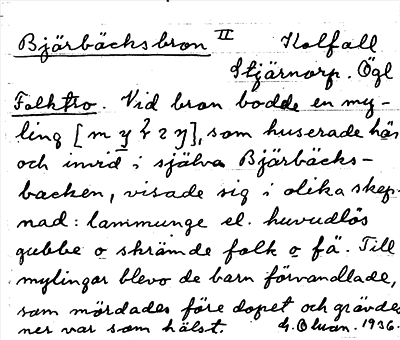 Bjärbäcksbron II Kolfall
Stjärnorp. Ögl
Folktro. Vid bron bodde en my-
ling [m y 2 2 y], som huserade här
och invid i själva Bjärbäcks-
backen, visade sig i olika skep-
nad: lammunge el. huvudlös
gubbe o skrämde folk o fä. Till
mylingar blevo de barn förvandlade,
som mördades före dopet och grävdes
ner var som hälst. G. Olson. 1936.